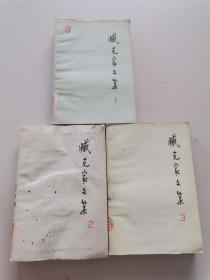 3
臧克家文集
1
臧克家文集
2
臧克家文集
3